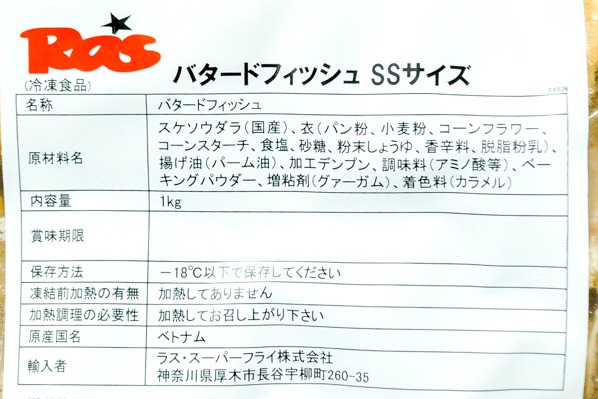 Ras
バタードフィッシュ SSサイズ
(冷凍食品)
名称 バタードフィッシュ
原材料名 スケソウダラ(国産)、衣(パン粉、小麦粉、コーンフラワー、
コーンスターチ、食塩、砂糖、粉末しょうゆ、香辛料、脱脂粉乳)、
揚げ油(パーム油)、加工デンプン、調味料(アミノ酸等)、ベー
キングパウダー、増粘剤(グァーガム)、着色料(カラメル)
内容量 1kg
賞味期限
保存方法 －18℃以下で保存してください
凍結前加熱の有無 加熱してありません
加熱調理の必要性 加熱してお召し上がり下さい
原産国名 ベトナム
輸入者 ラス・スーパーフライ株式会社
神奈川県厚木市長谷宇柳町260-35